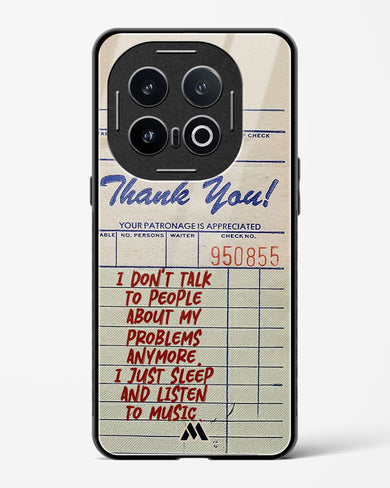 CHECK
Thank You!
YOUR PATRONAGE IS APPRECIATED
ABLE NO. PERSONS WAITER CHECK NO.
950855
I DON'T TALK
TO PEOPLE
ABOUT MY
PROBLEMS
ANYMORE.
I JUST SLEEP
AND LISTEN
TO MUSIC